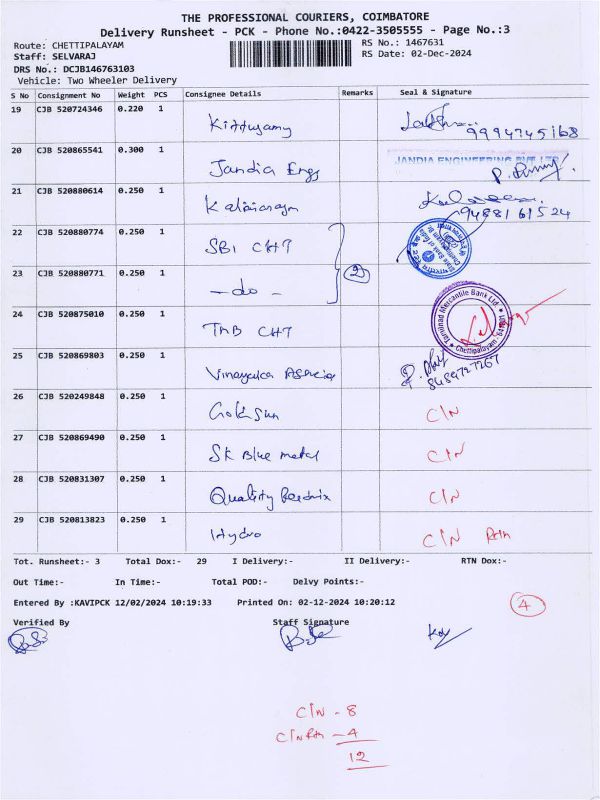 THE PROFESSIONAL COURIERS, COIMBATORE
Delivery Runsheet - PCK - Phone No.:0422-3505555 - Page No.:3
Route: CHETTIPALAYAM RS No.: 1467631
Staff: SELVARAJ RS Date: 02-Dec-2024
DRS No.: DCJB146763103
Vehicle: Two Wheeler Delivery
S No Consignment No Weight PCS Consignee Details Remarks Seal & Signature
19 CJB 520724346 0.220 1 Kittusamy 9994745168
20 CJB 520865541 0.300 1 Jandia Engg JANDIA ENGINEERING PVT LTD
21 CJB 520880614 0.250 1 9488161524
22 CJB 520880774 0.250 1 SBI CHT
23 CJB 520880771 0.250 1 - do - 2
24 CJB 520875010 0.250 1 TMB CHT Tamilnad Mercantile Bank Ltd. Chettipalayam
25 CJB 520869803 0.250 1 Vinayaka 8489727267
26 CJB 520249848 0.250 1 CIN
27 CJB 520869490 0.250 1 SK Blue metal CIN
28 CJB 520831307 0.250 1 Quality CIN
29 CJB 520813823 0.250 1 Hydro CIN
Tot. Runsheet:- 3 Total Dox:- 29 I Delivery:- II Delivery:- RTN Dox:-
Out Time:- In Time:- Total POD:- Delvy Points:-
Entered By :KAVIPCK 12/02/2024 10:19:33 Printed On: 02-12-2024 10:20:12 4
Verified By Staff Signature
CIN - 8
- 4
12